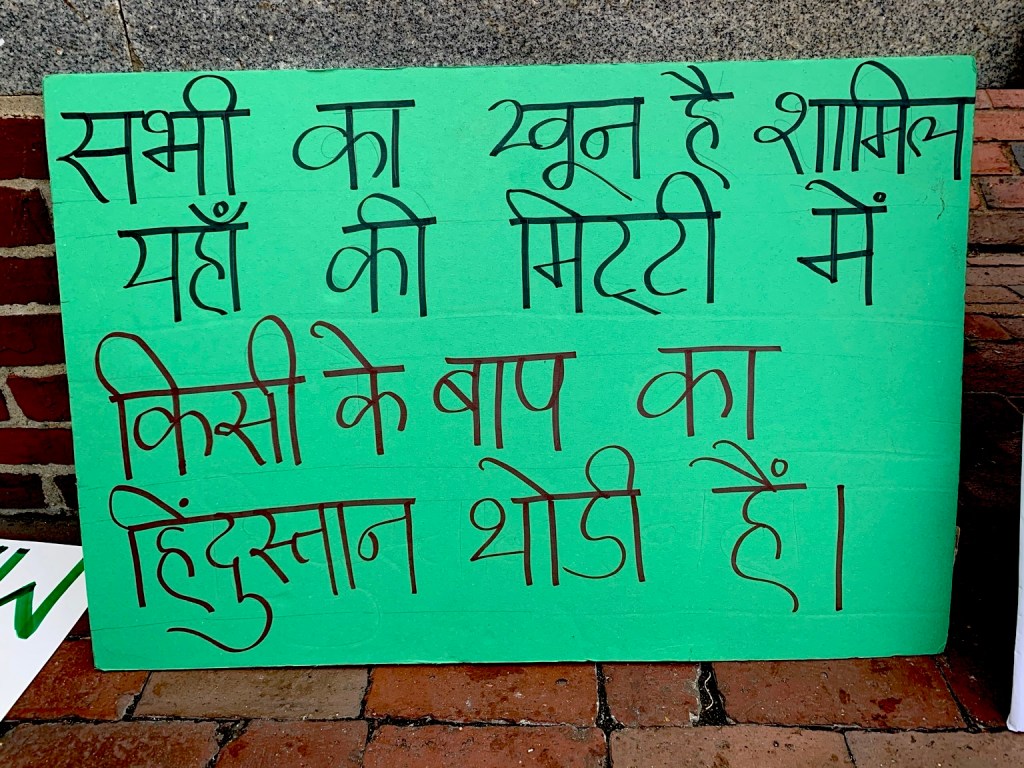 सभी का खून है शामिल
यहाँ की मिट्टी में
किसी के बाप का
हिंदुस्तान थोडी हैं।